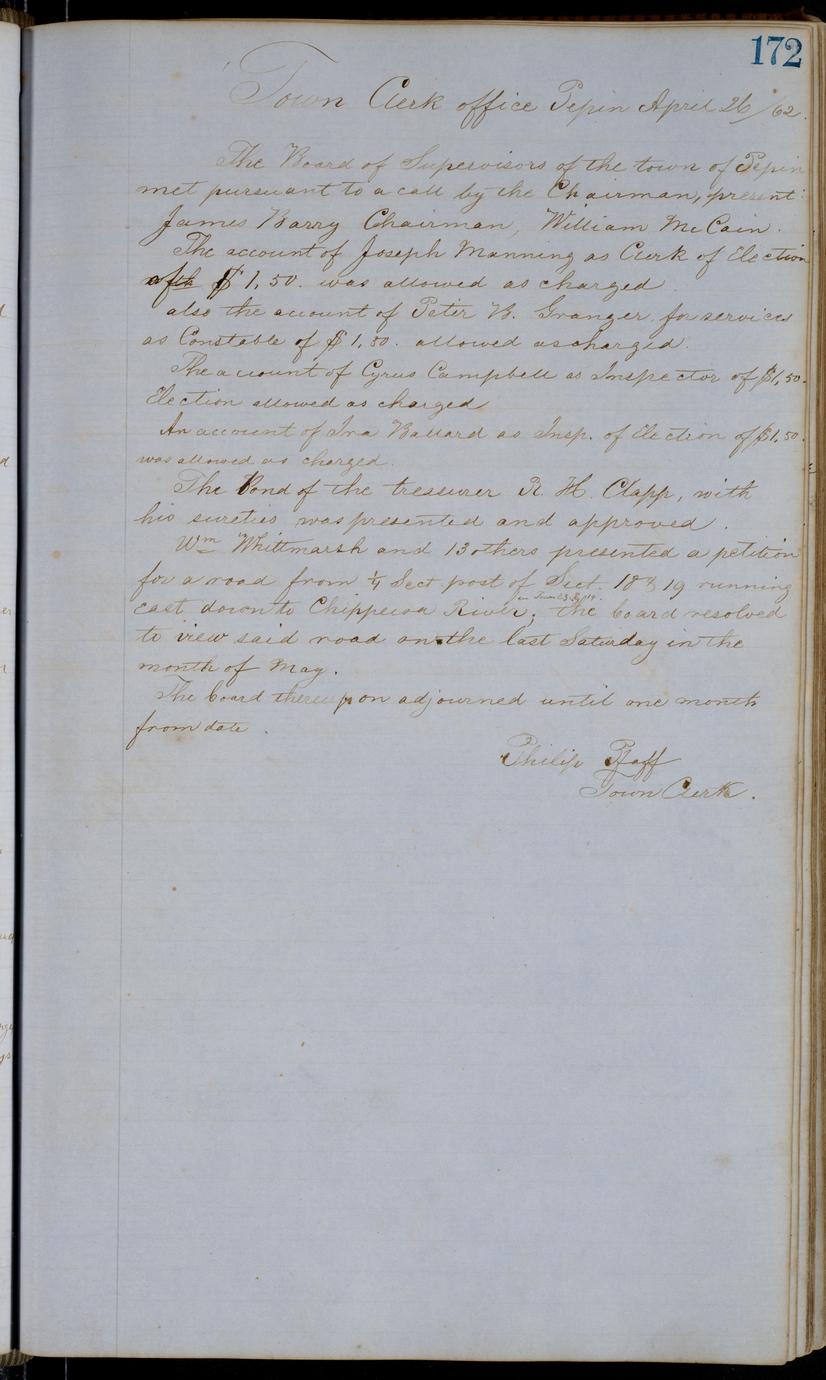 172
Town Clerk office Pepin April 26/62.
The Board of Supervisors of the town of Pepin
met pursuant to a call by the Chairman, present:
James Barry Chairman, William McCain.
The account of Joseph Manning as Clerk of Election
of $1,50. was allowed as charged.
also the account of Peter B. Granger for services
as Constable of $1,50. allowed as charged.
The account of Cyrus Campbell as Inspector of $1,50.
Election allowed as charged
An account of Ira Ballard as Insp. of Election of $1,50.
was allowed as charged.
The Bond of the tressurer R. H. Clapp, with
his sureties was presented and approved.
Wm Whittmarsh and 13 others presented a petition
for a road from ¼ Sect post of Sect. 18 & 19 running
east down to Chippewa River; the board resolved
to view said road on the last Saturday in the
month of May.
The board thereupon adjourned until one month
from date.
Philip Pfaff
Town Clerk.